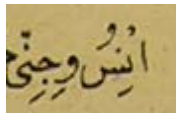 انس وجنی